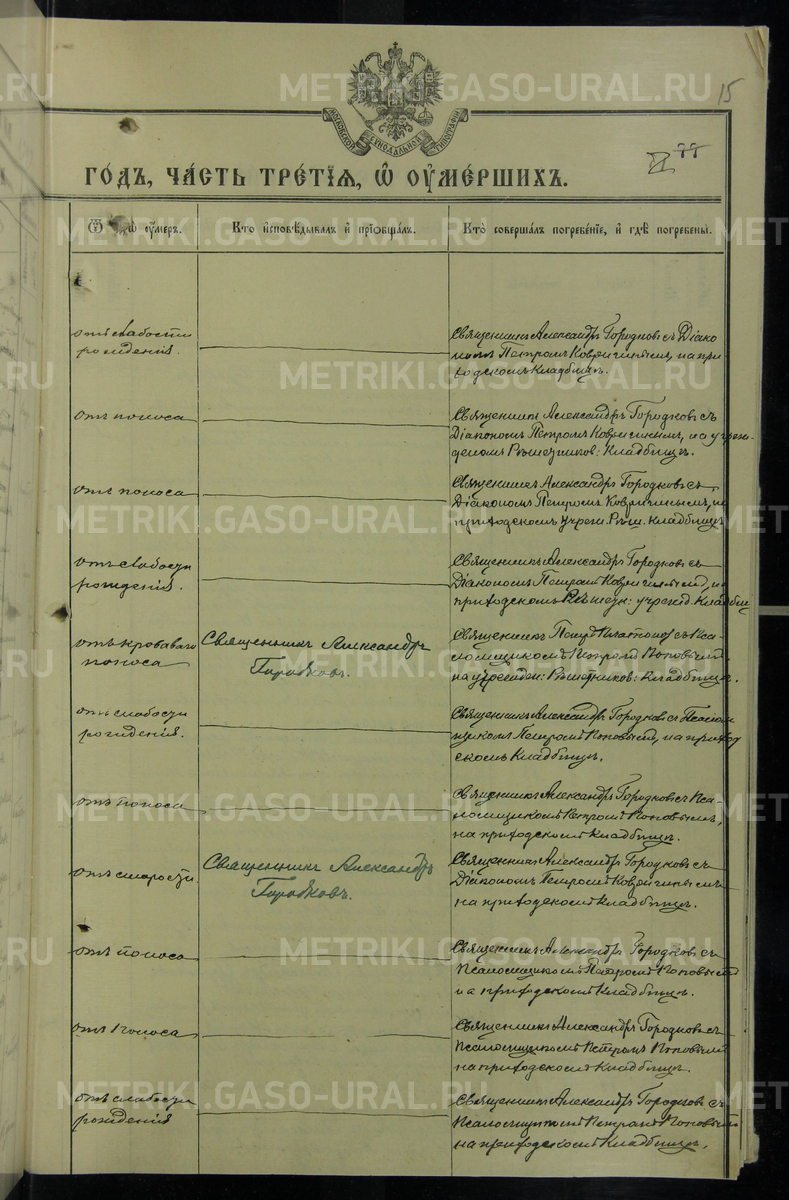 METRIKI.GASO-URAL.RU
15
МОСКОВСКОЙ СѴНОДАЛЬНОЙ ТИПОГРАФІИ
77
ГО́ДЪ, ЧА́СТЬ ТРЕ́ТІѦ, Ѡ҆ ОУ҆МЕ́РШИХЪ.
Ѿ ѡ҆ оу҆́меръ.
Кто̀ и҆сповѣ́дывалъ и҆ приѻбща́лъ.
Кто̀ соверша́лъ погребе́ніе, и҆ гдѣ̀ погребены̀.
отъ слабости
рожденія.
Священникъ Александръ Городковъ съ Діако
номъ Петромъ Ковригинымъ, на при
ходскомъ кладбищѣ.
отъ поноса
Священникъ Александръ Городковъ съ
Діакономъ Петромъ Ковригинымъ, на учреж-
деномъ Рѣшетников: Кладбищѣ.
отъ поноса
Священникъ Александръ Городковъ съ
Діакономъ Петромъ Ковригинымъ, на
приходскомъ учреж. Рѣш. кладбищѣ
отъ слабости
рожденія.
Священникъ Александръ Городковъ съ
Діакономъ Петромъ Ковригинымъ, на
приходскомъ учрежд. Кладбищ
отъ кроваваго
поноса
Священникъ Александръ
Городковъ.
Священникъ Петръ Платоновъ съ Пса-
ломщикомъ Петромъ Поповымъ
на учрежден: Рѣшетников: кладбищѣ.
отъ слабости
рожденія.
Священникъ Александръ Городковъ съ Псалом
щикомъ Петромъ Поповымъ, на приход
скомъ Кладбищѣ.
отъ поноса
Священникъ Александръ Городковъ съ Пса-
ломщикомъ Петромъ Поповымъ,
на приходскомъ кладбищѣ.
отъ старости
Священникъ Александръ
Городковъ.
Священникъ Александръ Городковъ съ
Діакономъ Петромъ Ковригинымъ
на приходскомъ кладбищѣ.
отъ поноса
Священникъ Александръ Городковъ съ
Псаломщикомъ Петромъ Поповымъ
на приходскомъ Кладбищѣ.
отъ поноса
Священникъ Александръ Городковъ съ
Псаломщикомъ Петромъ Поповымъ
на приходскомъ кладбищѣ.
отъ слабости
рожденія
Священникъ Александръ Городковъ съ
Псаломщикомъ Петромъ Поповымъ
на приходскомъ Кладбищѣ.